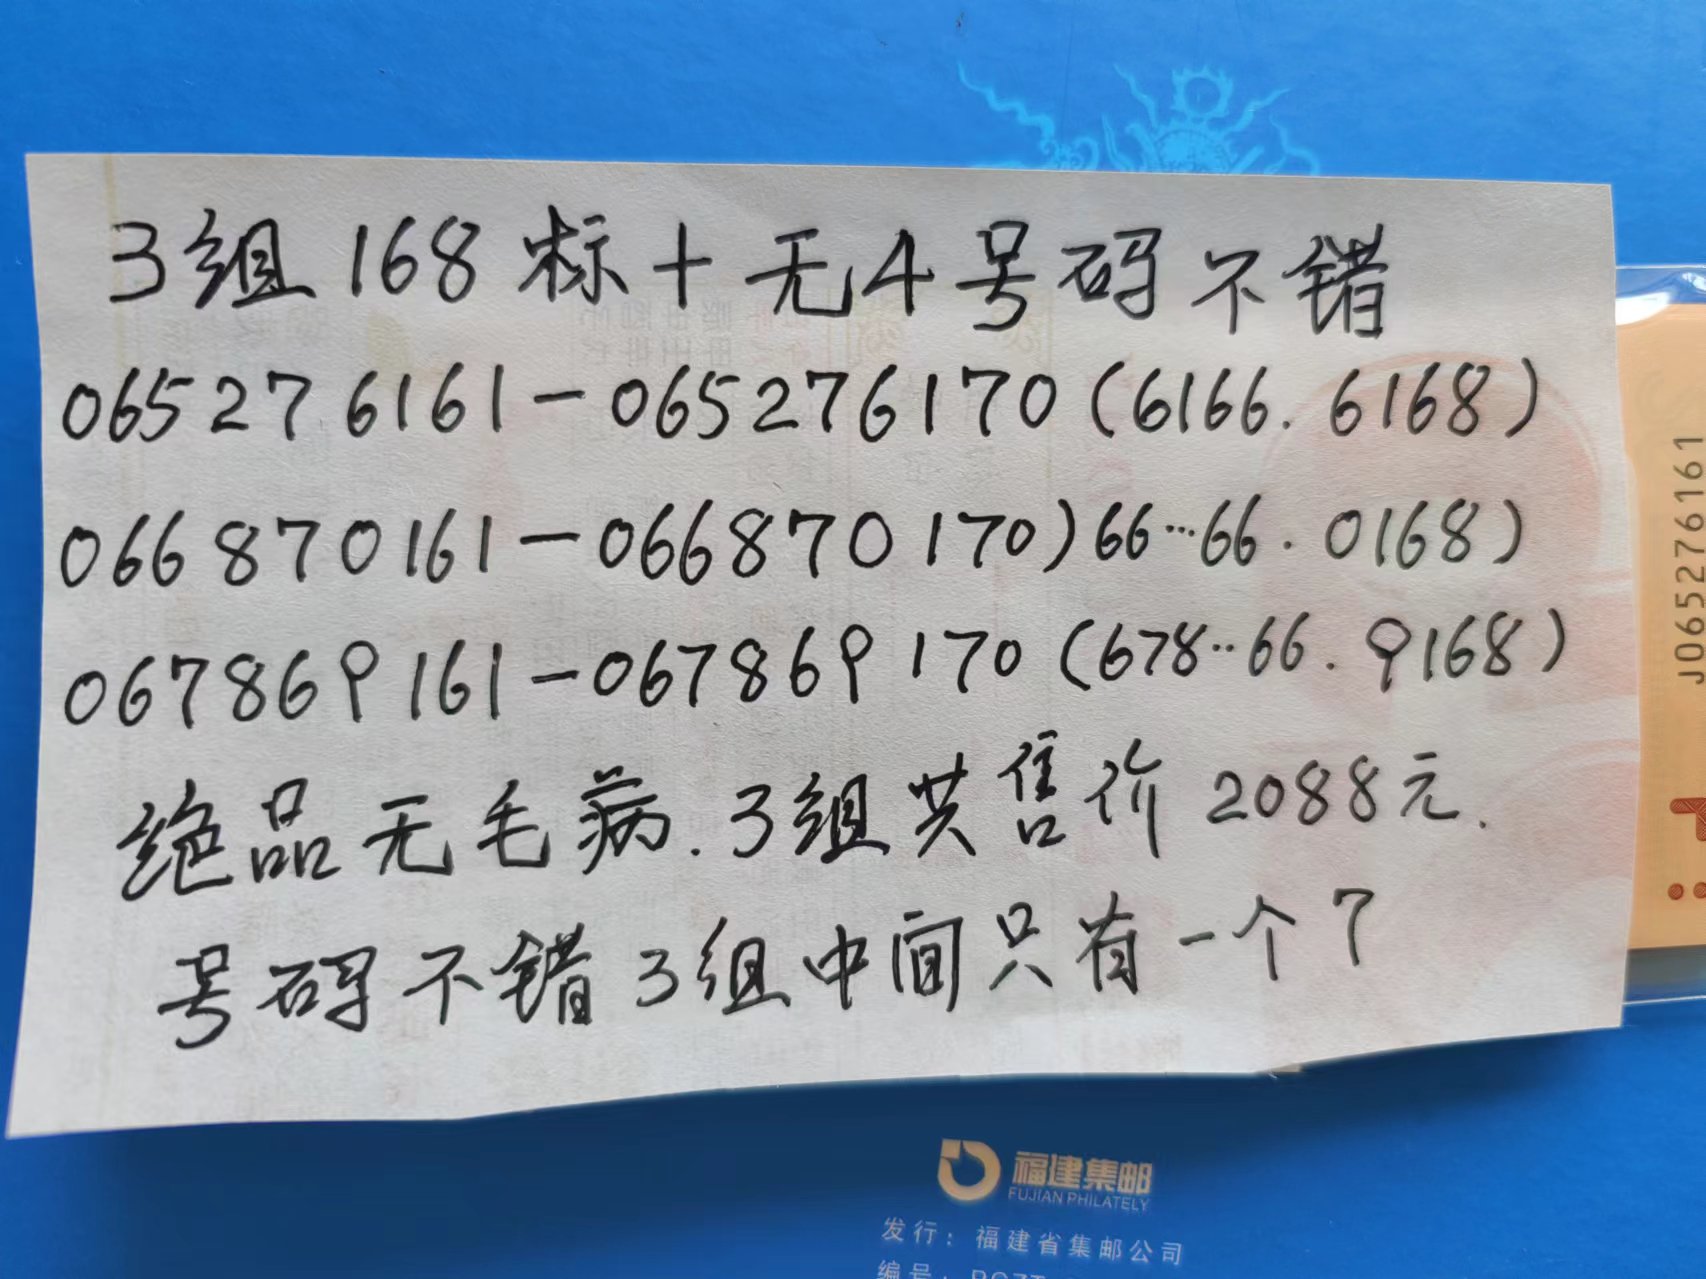 3组168标十无4号码不错
065276161-065276170(6166.6168)
066870161-066870170)66…66.0168)
067869161-067869170(678..66.9168)
绝品无毛病.3组共售价2088元.
号码不错3组中间只有一个7
J065276161
福建集邮
FUJIAN PHILATELY
发行：福建省集邮公司
编号：